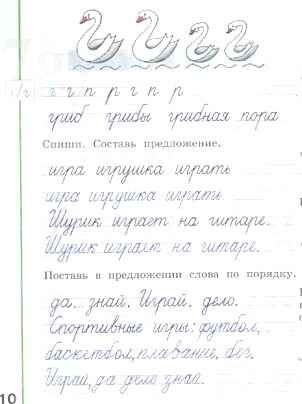 г г п р г п р
гриб грибы грибная пора
Спиши. Составь предложение.
игра игрушка играть
игра игрушка играть
Шурик играет на гитаре.
Шурик играет на гитаре.
Поставь в предложении слова по порядку.
да, знай, Играй, дело.
Спортивные игры: футбол,
баскетбол, плавание, бег.
Играй, да дело знай.
10